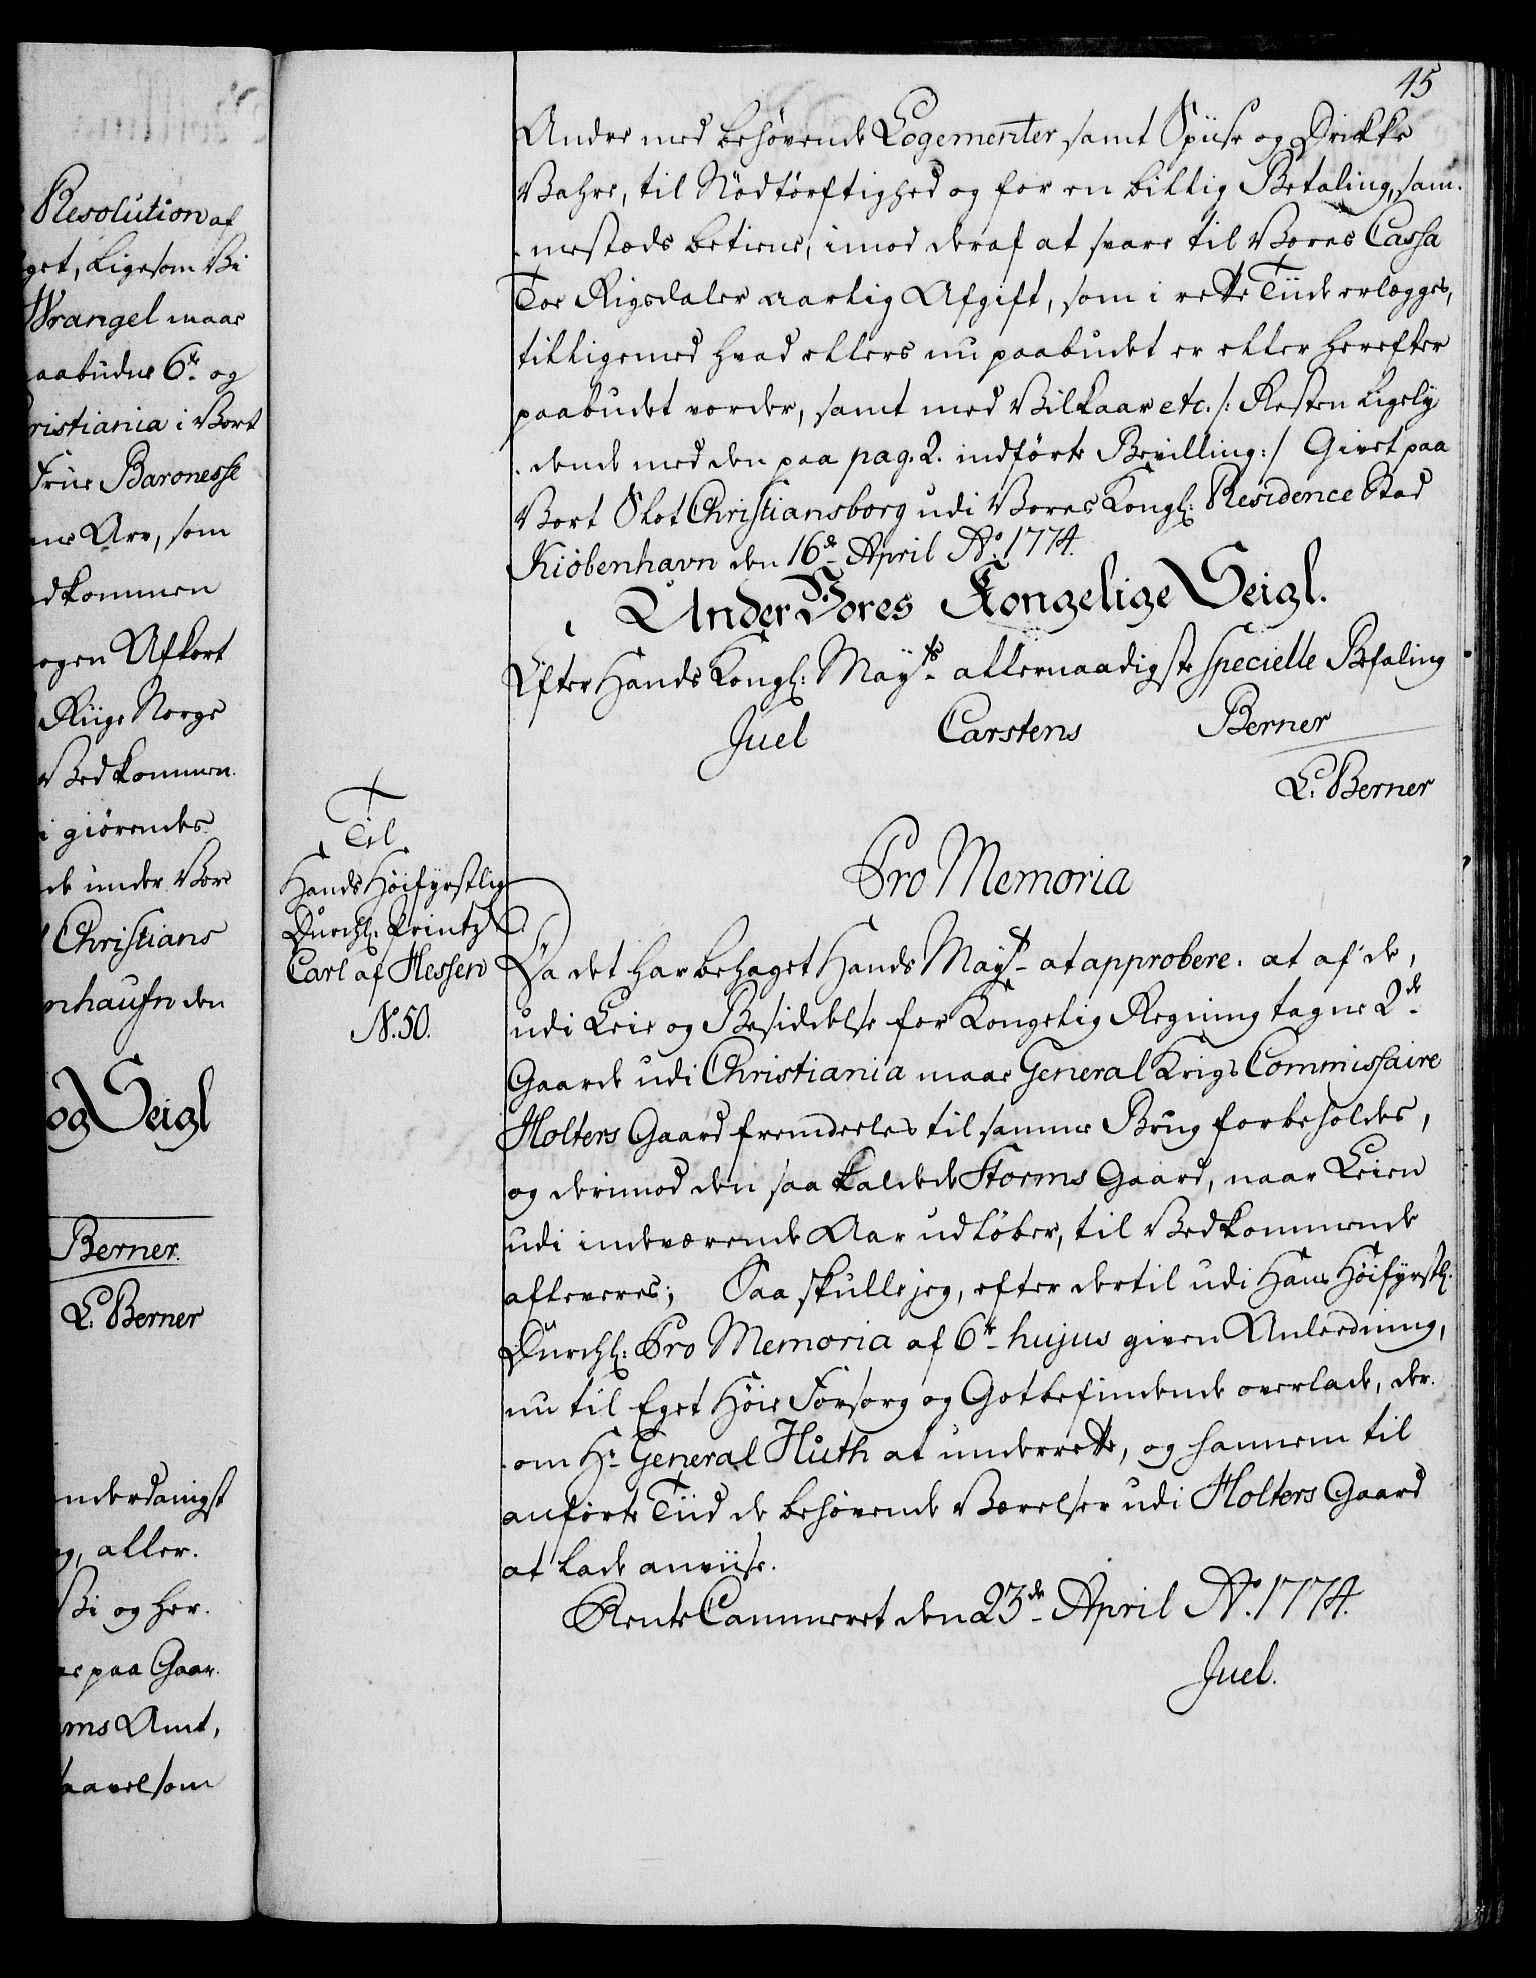 Resolution af
get, Ligesom Vi
Wrangel maae
aabudne 6te og
ristiania i Vort
Frue Baronesse
ns Arv, som
dkommen
ogen Afkort
Riige Norge
Vedkommen.
i giørendes
de under Vore
Christians
nhaufn den
og Seigl
Berner.
L: Berner
nderdanigst
g, aller.
Vi og her.
ne paa Gaar.
ms Amt,
saavelsom
45
Andre med behøvende Logementer samt Spiise og Drikke
Vahre, til Nødtørftighed og for en billig Betaling, sam.
mestæds betiene, imod deraf at svare til Vores Cassa
Toe Rigsdaler aarlig Afgift, som i rette Tiide erlægges,
tilligemed hvad ellers nu paabudet er eller herefter
paabudet vorder, samt med Vilkaar etc. /: Resten Ligely
dende med den paa pag. 2. indførte Bevilling :/ Givet paa
Vort Slot Christiansborg udi Vores Kongl: Residence Stad
Kiöbenhavn den 16de April Ao 1774.
Under Vores Kongelige Seigl.
Efter Hands Kongl: Mayts allernaadigste specielle Befaling
Juel Carstens Berner
L: Berner
Til
Hands Høifyrstlig
Durchl: Printz
Carl af Hessen
No. 50.
Pro Memoria
Da det har behaget Hands Mayt at approbere. at af de,
udi Leie og Besiddelse for Kongelig Regning tagne 2de
Gaarde udi Christiania maae General Krigs Commissaire
Holters Gaard fremdeeles til samme Brug forbeholdes,
og derimod den saa kaldede Storms Gaard, naar Leien
udi indeværende Aar udløber, til Vedkommende
afleveres; Saa skulle jeg, efter dertil udi Hans Høifyrstl:
Durchl: Pro Memoria af 6te hujus given Anledning,
nu til Eget Høie Forsorg og Gotbefindende overlade, der.
om Hr General Huth at underrette, og hannem til
anførte Tiid de behøvende Værelser udi Holters Gaard
at lade anviise.
Rente Cammeret den 23de April Ao. 1774.
Juel.